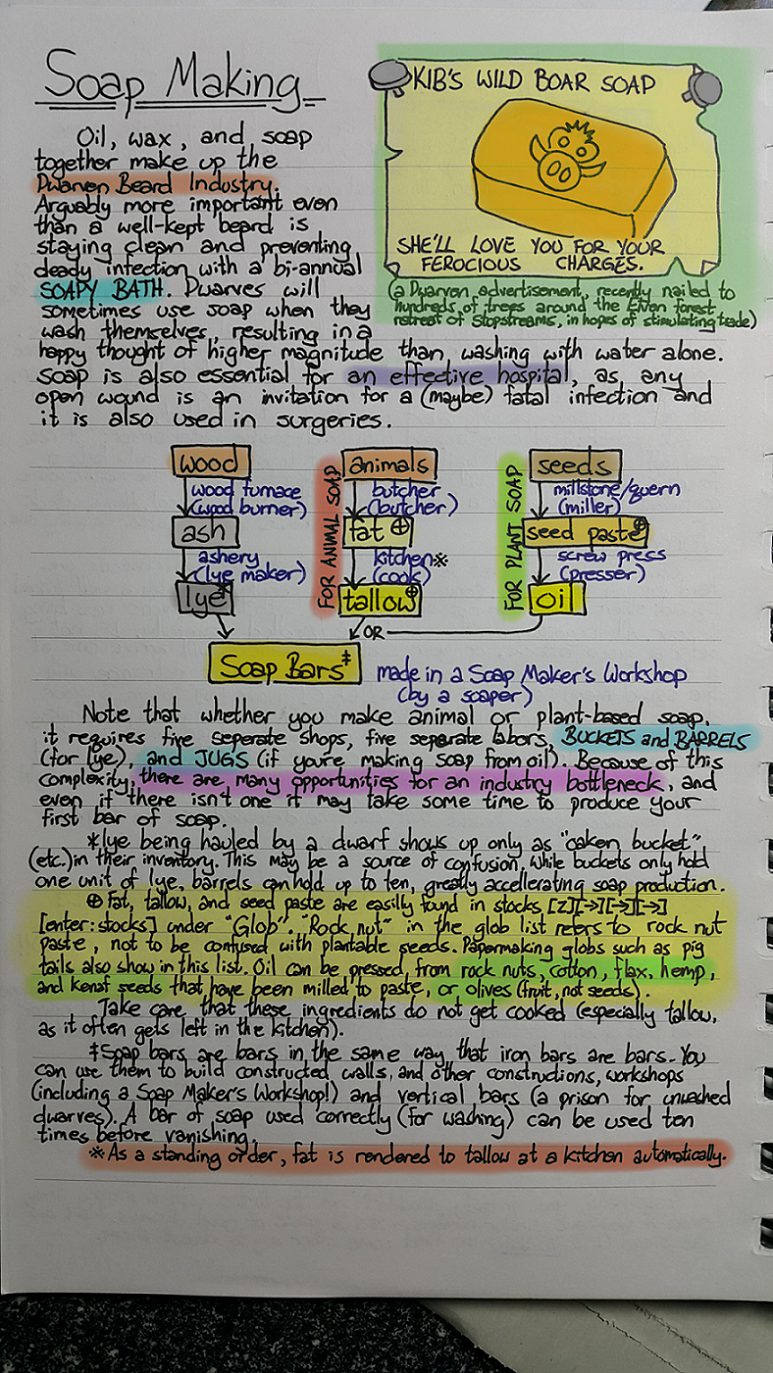 Soap Making
KIB'S WILD BOAR SOAP
SHE'LL LOVE YOU FOR YOUR
FEROCIOUS CHARGES.
(a Dwarven advertisement, recently nailed to
hundreds of trees around the Elven forest
retreat of Stopstreams, in hopes of stimulating trade)
Oil, wax, and soap
together make up the
Dwarven Beard Industry.
Arguably more important even
than a well-kept beard is
staying clean and preventing
deady infection with a bi-annual
SOAPY BATH. Dwarves will
sometimes use soap when they
wash themselves, resulting in a
happy thought of higher magnitude than washing with water alone.
Soap is also essential for an effective hospital, as any
open wound is an invitation for a (maybe) fatal infection and
it is also used in surgeries.
wood
wood furnace
(wood burner)
ash
ashery
(lye maker)
lye*
FOR ANIMAL SOAP
animals
butcher
(butcher)
fat ⊕
kitchen※
(cook)
tallow⊕
FOR PLANT SOAP
seeds
millstone/quern
(miller)
seed paste⊕
screw press
(presser)
oil
OR
Soap Bars‡
made in a Soap Maker's Workshop
(by a soaper)
Note that whether you make animal or plant-based soap,
it requires five seperate shops, five separate labors, BUCKETS and BARRELS
(for lye), and JUGS (if you're making soap from oil). Because of this
complexity, there are many opportunities for an industry bottleneck, and
even if there isn't one it may take some time to produce your
first bar of soap.
*lye being hauled by a dwarf shows up only as "oaken bucket"
(etc.) in their inventory. This may be a source of confusion. While buckets only hold
one unit of lye, barrels can hold up to ten, greatly accellerating soap production.
⊕ Fat, tallow, and seed paste are easilly found in stocks [z][→][→][→]
[enter:stocks] under "Glob". "Rock nut" in the glob list refers to rock nut
paste, not to be confused with plantable seeds. Papermaking globs such as pig
tails also show in this list. Oil can be pressed from rock nuts, cotton, flax, hemp,
and kenaf seeds that have been milled to paste, or olives (fruit, not seeds).
Take care that these ingredients do not get cooked (especially tallow,
as it often gets left in the kitchen).
‡Soap bars are bars in the same way that iron bars are bars. You
can use them to build constructed walls, and other constructions, workshops
(including a Soap Maker's Workshop!) and vertical bars (a prison for unwashed
dwarves). A bar of soap used correctly (for washing) can be used ten
times before vanishing.
※As a standing order, fat is rendered to tallow at a kitchen automatically.